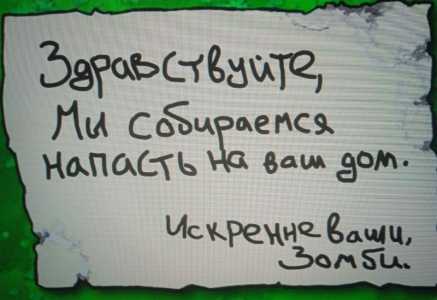 Здравствуйте,
Мы собираемся
напасть на ваш дом.
Искренне ваши,
Зомби.